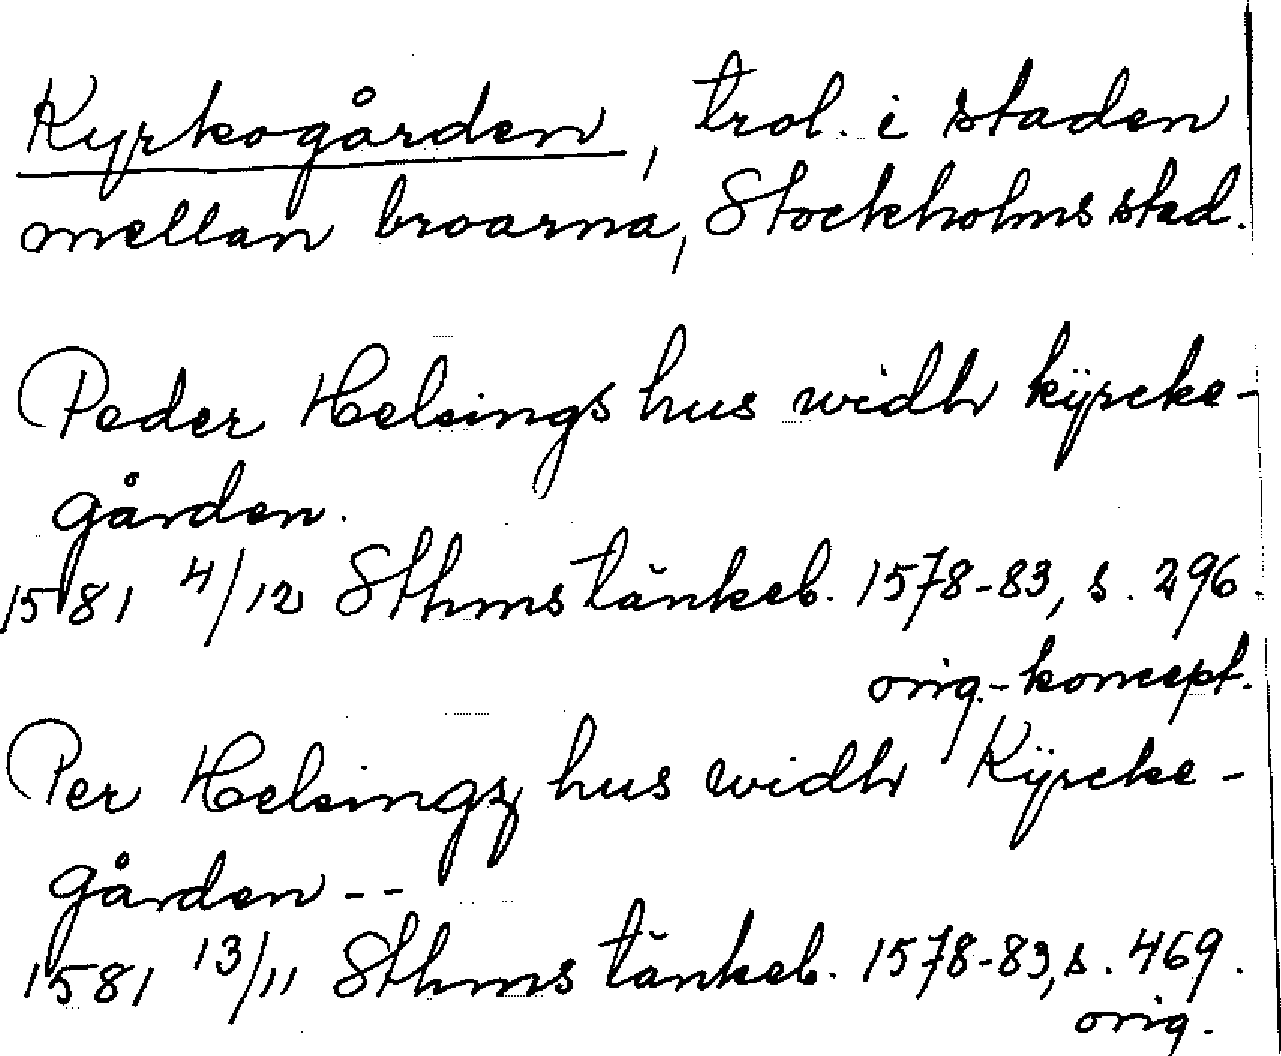 Kyrkogården, trol. i staden
mellan broarna, Stockholms stad.
Peder Helsings hus widh kÿrcke-
gården.
1581 4/12 Sthms tänkeb. 1578-83, s. 296.
orig.-koncept.
Per Helsingz hus widh Kÿrcke-
gården --
1581 13/11 Sthms tänkeb. 1578-83, s. 469.
orig.